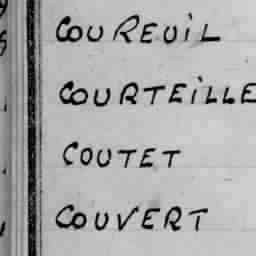 COUREUIL
COURTEILLE
COUTET
COUVERT